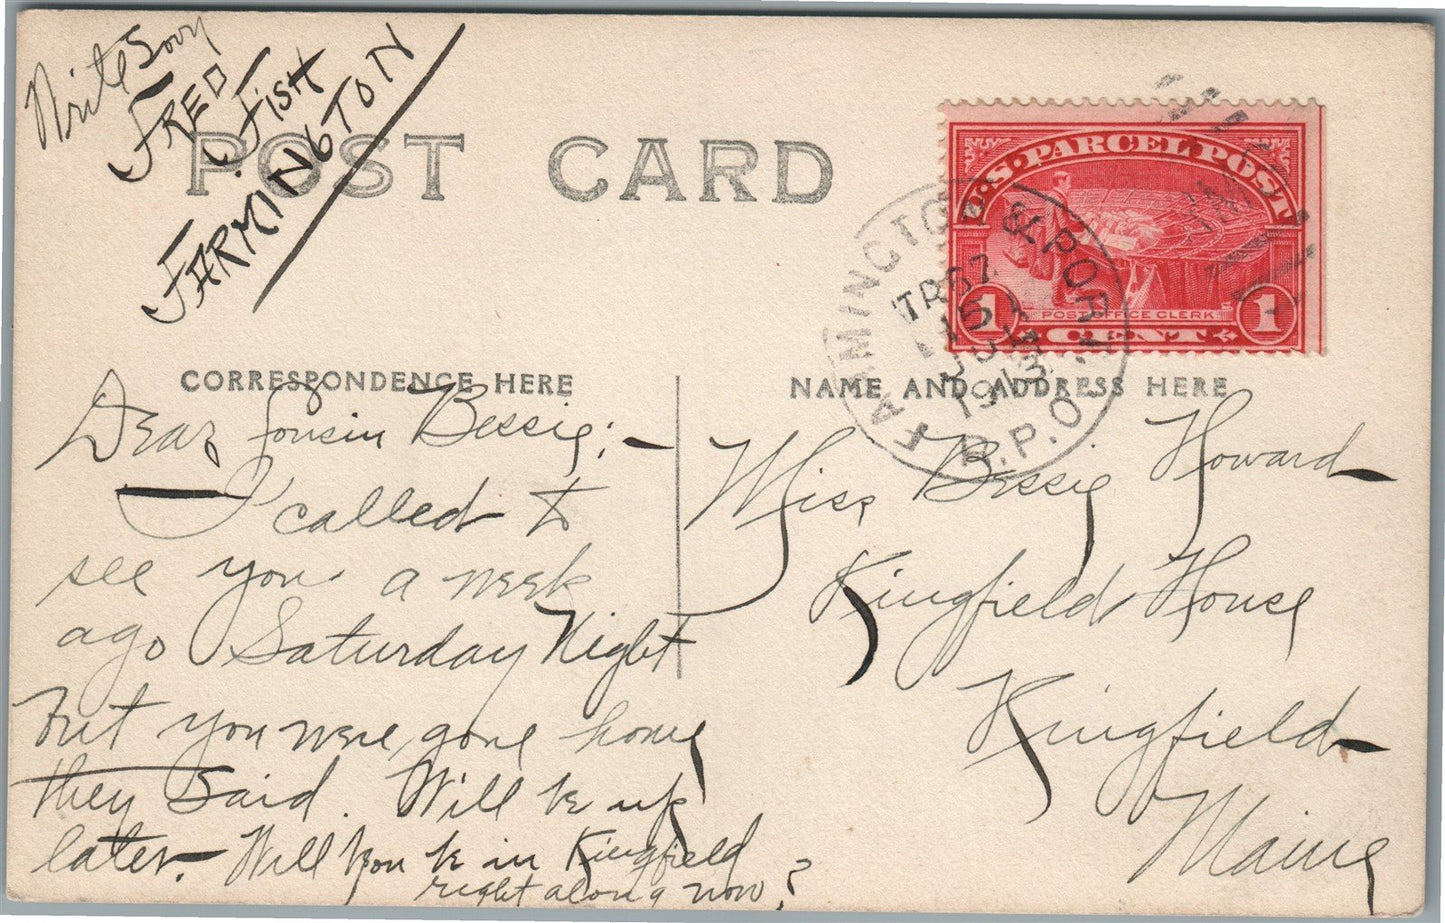 Write Soon
FRED
FISH
FARMINGTON
POST CARD
U.S. PARCEL POST
1 POST OFFICE CLERK 1
CENT
FARMINGTON & PORT.
TR 67
15
JUL
1913
R.P.O.
CORRESPONDENCE HERE
NAME AND ADDRESS HERE
Dear Cousin Bessie:-
I called to
see you a week
ago Saturday Night
but you were gone home
they said. Will be up
later. Will you be in Kingfield
right along now?
Miss Bessie Howard
Kingfield House
Kingfield
Maine